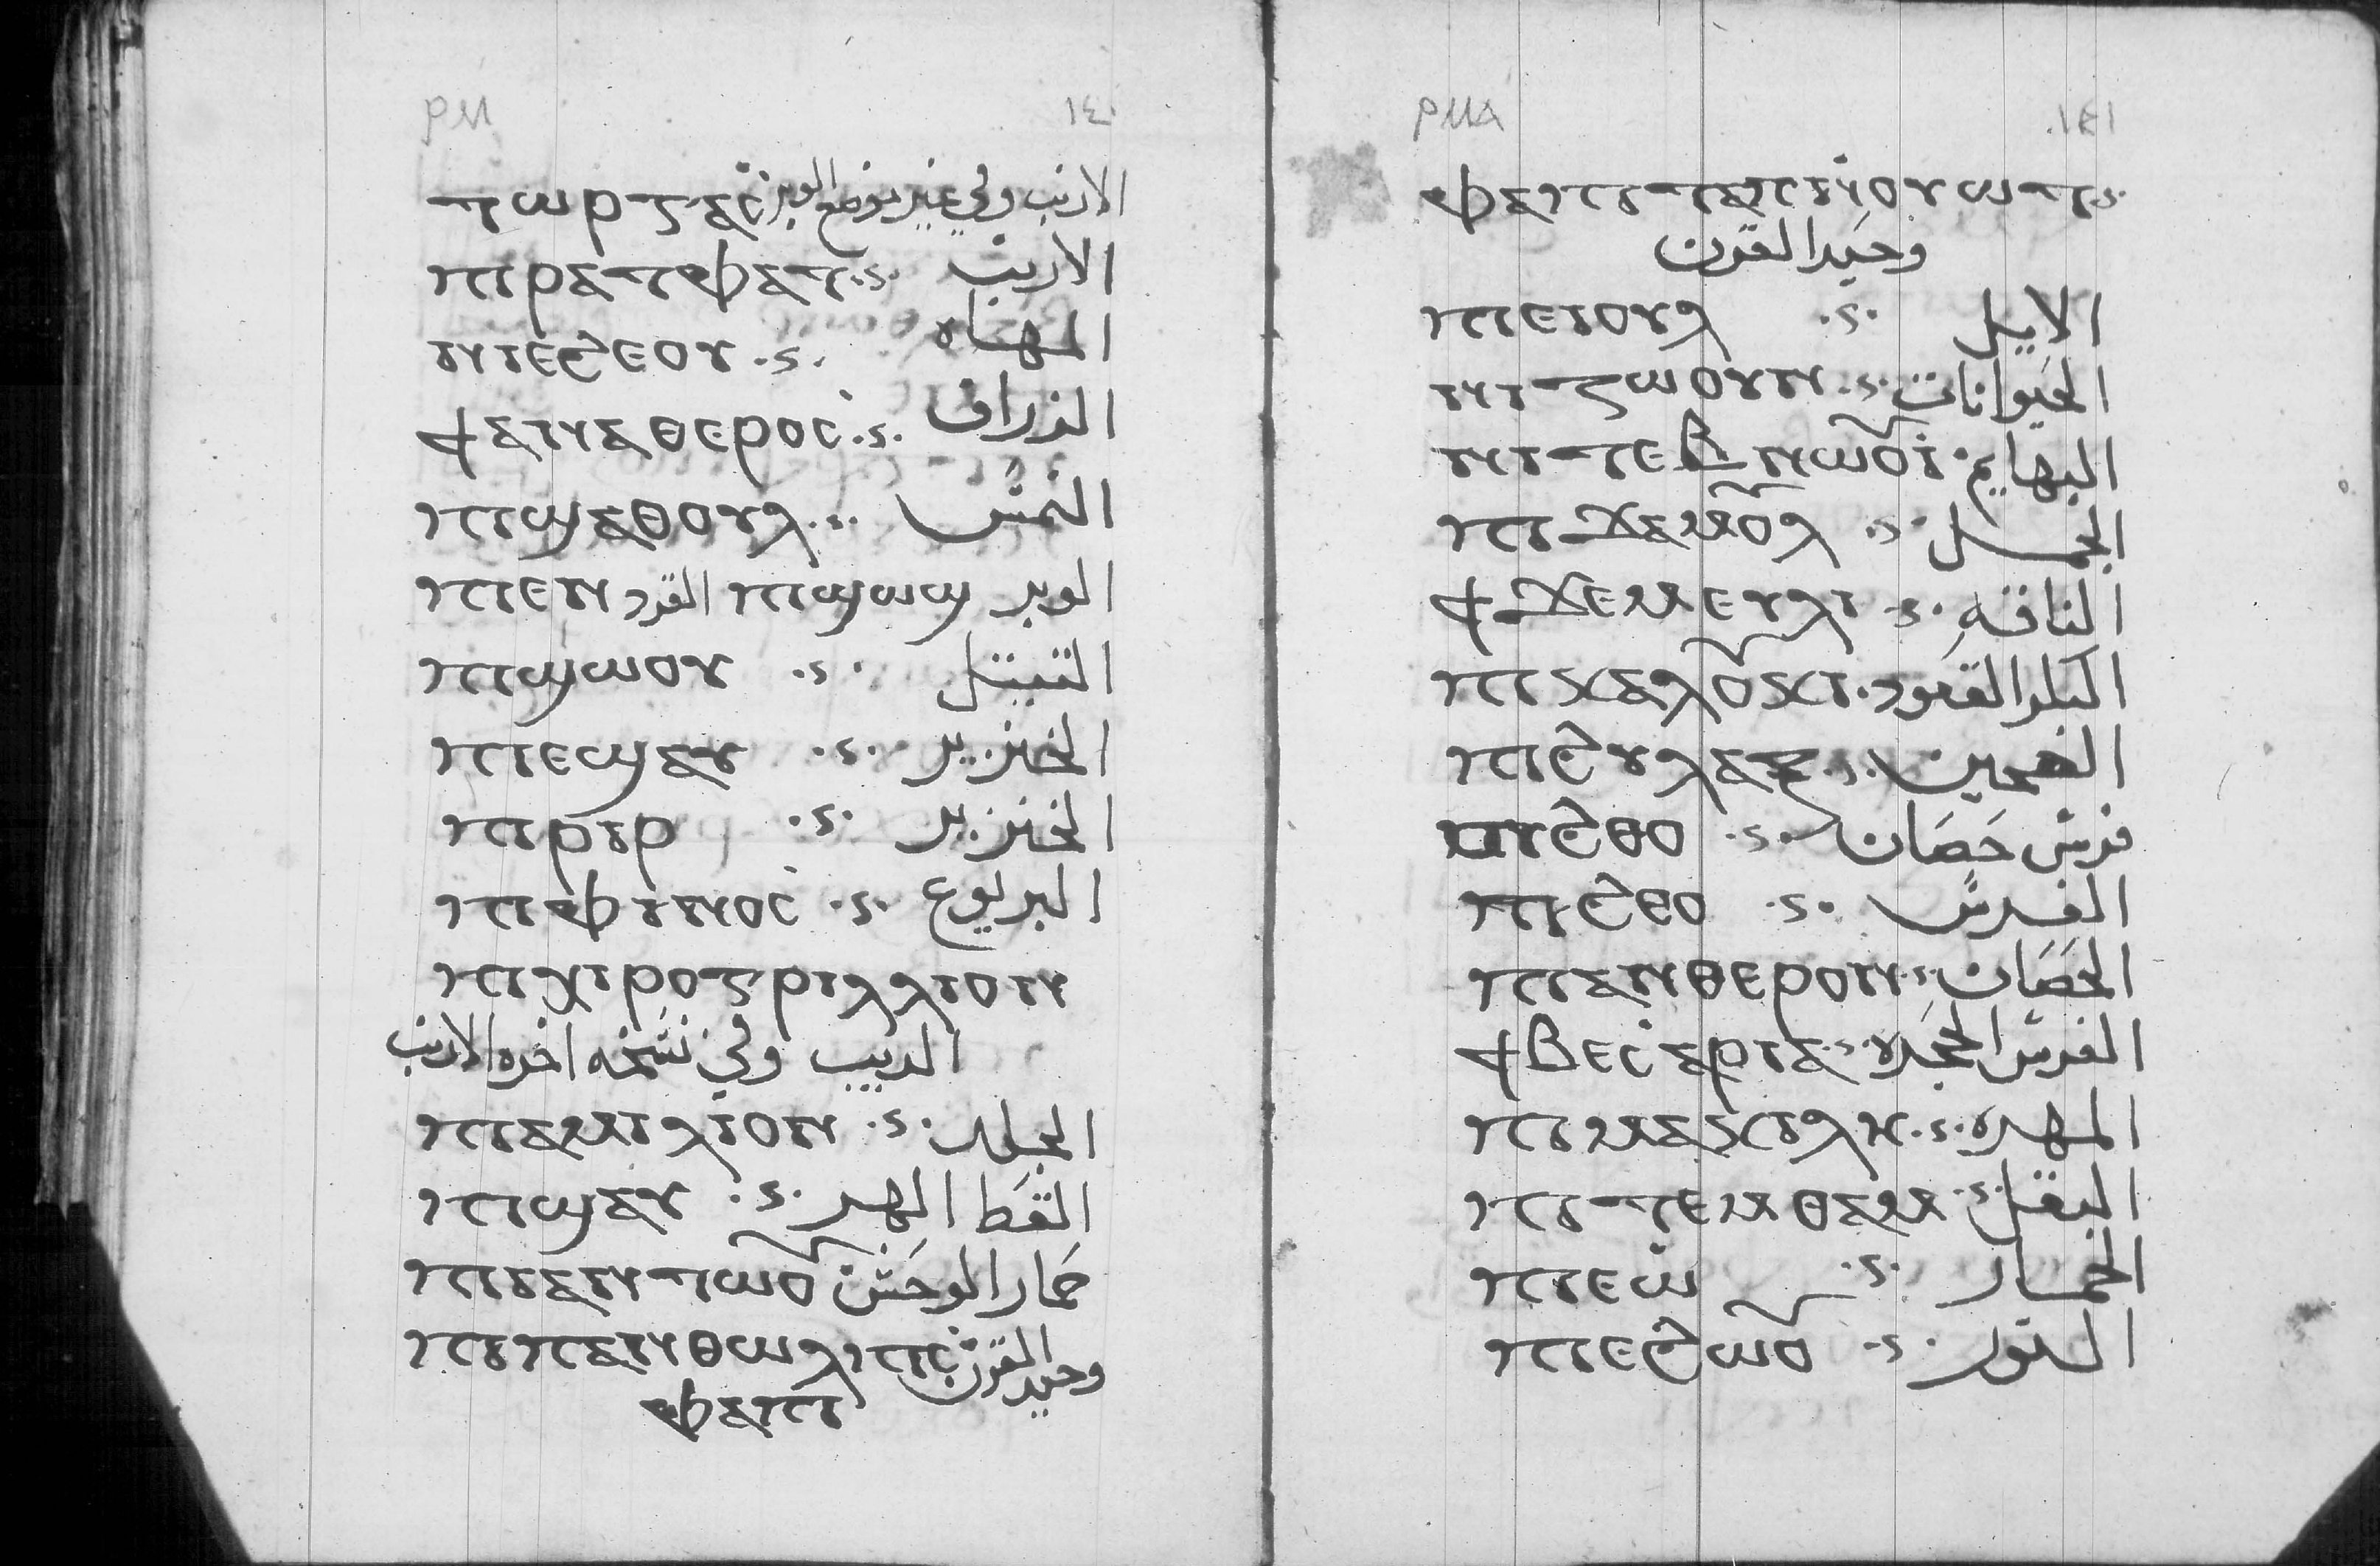 ⲣⲙ ١٤٠
ⲧⲱⲣⲍⲁⲥ الارنب وفي غير موضع الوبر
ⲡⲣⲁⲧⲫⲁⲧ الارنب
ⲛⲓⲉϩⲉⲟⲩ المهاه
ϯⲁⲛⲁⲑⲉⲣⲟⲥ الزراف
ⲡⲓϣⲁⲑⲟⲩⲗ النمس
ⲡⲓⲉⲛ القرد ⲡⲓϣⲱϣ الوبر
ⲡⲓϣⲱⲟⲩ التيتل
ⲡⲓⲉϣⲁⲩ الخنزير
ⲡⲓⲣⲓⲣ الخنزير
ⲡⲓⲫⲓⲛⲟⲥ اليربوع
ⲡⲓⲭⲓⲣⲟⲅⲣⲓⲗⲗⲓⲟⲛ
الدبيب وفي نسخه اخره الارنب
ⲡⲓⲁⲙⲓⲗⲓⲟⲛ
ⲡⲓϣⲁⲩ القط الهر
ⲡⲓⲓⲁⲛⲧⲱⲟⲩ حمار الوحش
ⲡⲓⲡⲁⲛⲑⲱⲗⲟⲡⲥ وحيد القرن
ⲫⲁⲡⲓ
ⲣⲙⲁ ١٤١
ⲫⲁⲡⲓⲧⲁⲡⲛⲟⲩⲱⲧ
وحيد القرن
ⲡⲓⲉⲓⲟⲩⲗ الايل
ⲛⲓⲍⲱⲟⲩⲛ الحيوانات
ⲛⲓⲧⲉⲃⲛⲱⲟⲩⲓ البهايم
ⲡⲓϫⲁⲙⲟⲩⲗ الجمل
ϯϫⲉⲙⲉⲩⲗⲓ الناقه
ⲡⲓⲭⲁⲗⲟⲩⲭⲓ القعود
ⲡⲓϩⲩⲗⲁϫ
ⲡⲓϩⲑⲟ فرس حصان
ⲡⲓϩⲑⲟ الفرس
ⲡⲓⲁⲛⲑⲉⲣⲟⲛ الحصان
ϯⲃⲉⲥⲁⲣⲓⲁ الفرس الحجره
ⲡⲓⲙⲁⲥⲓⲗⲏ المهره
ⲡⲓⲧⲉⲙⲑⲁⲙ البغل
ⲡⲓⲉⲱ الحمار
ⲡⲓⲉϩⲱⲟⲩ الثور